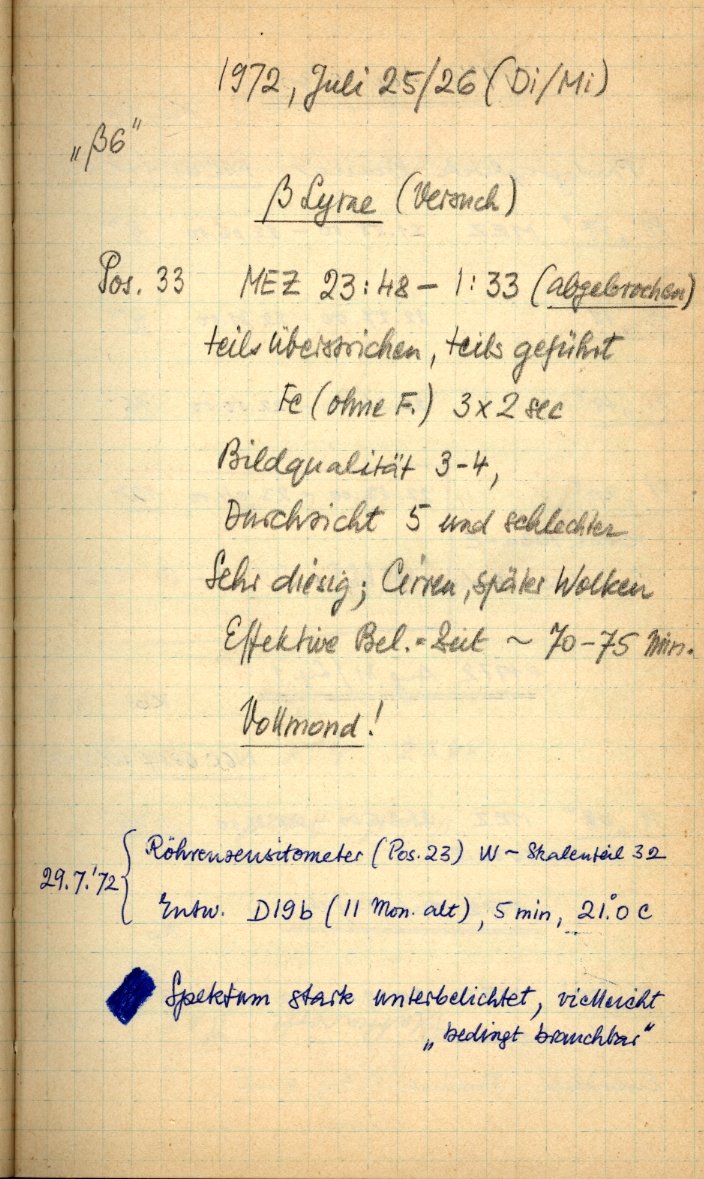 1972, Juli 25/26 (Di/Mi)
„β6“
β Lyrae (Versuch)
Pos. 33 MEZ 23:48 – 1:33 (abgebrochen)
teils überstrichen, teils geführt
Fe (ohne F.) 3x2 sec
Bildqualität 3-4,
Durchsicht 5 und schlechter
Sehr diesig; Cirren, später Wolken
Effektive Bel.-Zeit ~ 70-75 Min.
Vollmond!
29.7.'72 { Röhrensensitometer (Pos. 23) W ~ Skalenteil 32
Entw. D19b (11 Mon. alt), 5 min, 21.°0 C
Spektrum stark unterbelichtet, vielleicht
„bedingt brauchbar“